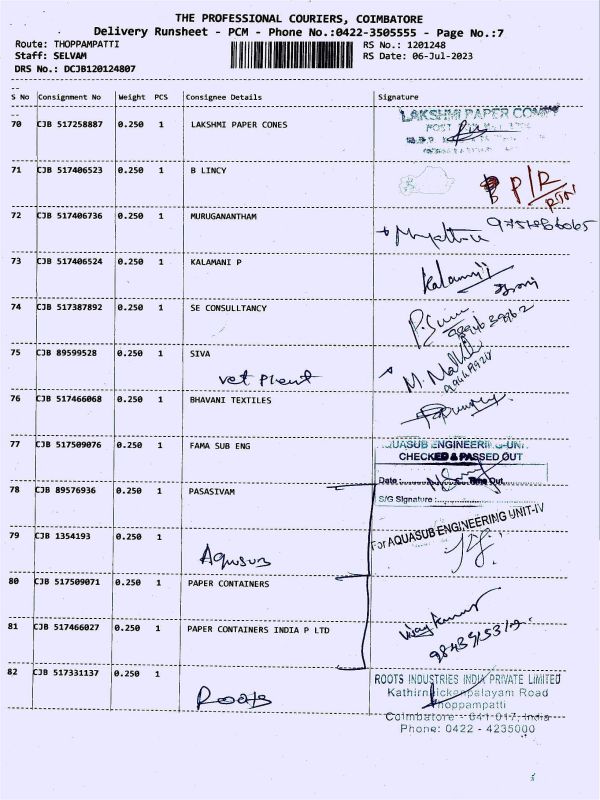 THE PROFESSIONAL COURIERS, COIMBATORE
Delivery Runsheet - PCM - Phone No.:0422-3505555 - Page No.:7
Route: THOPPAMPATTI
RS No.: 1201248
Staff: SELVAM
RS Date: 06-Jul-2023
DRS No.: DCJB120124807
S No Consignment No Weight PCS Consignee Details Signature
70 CJB 517258887 0.250 1 LAKSHMI PAPER CONES
LAKSHMI PAPER CONES
71 CJB 517406523 0.250 1 B LINCY
P/R
72 CJB 517406736 0.250 1 MURUGANANTHAM
73 CJB 517406524 0.250 1 KALAMANI P
74 CJB 517387892 0.250 1 SE CONSULLTANCY
75 CJB 89599528 0.250 1 SIVA
vet Plant
76 CJB 517466068 0.250 1 BHAVANI TEXTILES
77 CJB 517509076 0.250 1 FAMA SUB ENG
AQUASUB ENGINEERING-UNIT
CHECKED & PASSED OUT
Date: Time Out
78 CJB 89576936 0.250 1 PASASIVAM
S/G Signature :
79 CJB 1354193 0.250 1
For AQUASUB ENGINEERING UNIT-IV
Aquasub
80 CJB 517509071 0.250 1 PAPER CONTAINERS
81 CJB 517466027 0.250 1 PAPER CONTAINERS INDIA P LTD
Vijay Kumar
82 CJB 517331137 0.250 1
Roots
ROOTS INDUSTRIES INDIA PRIVATE LIMITED
Kathirnaickenpalayam Road
Thoppampatti
Coimbatore - 641 017, India
Phone: 0422 - 4235000